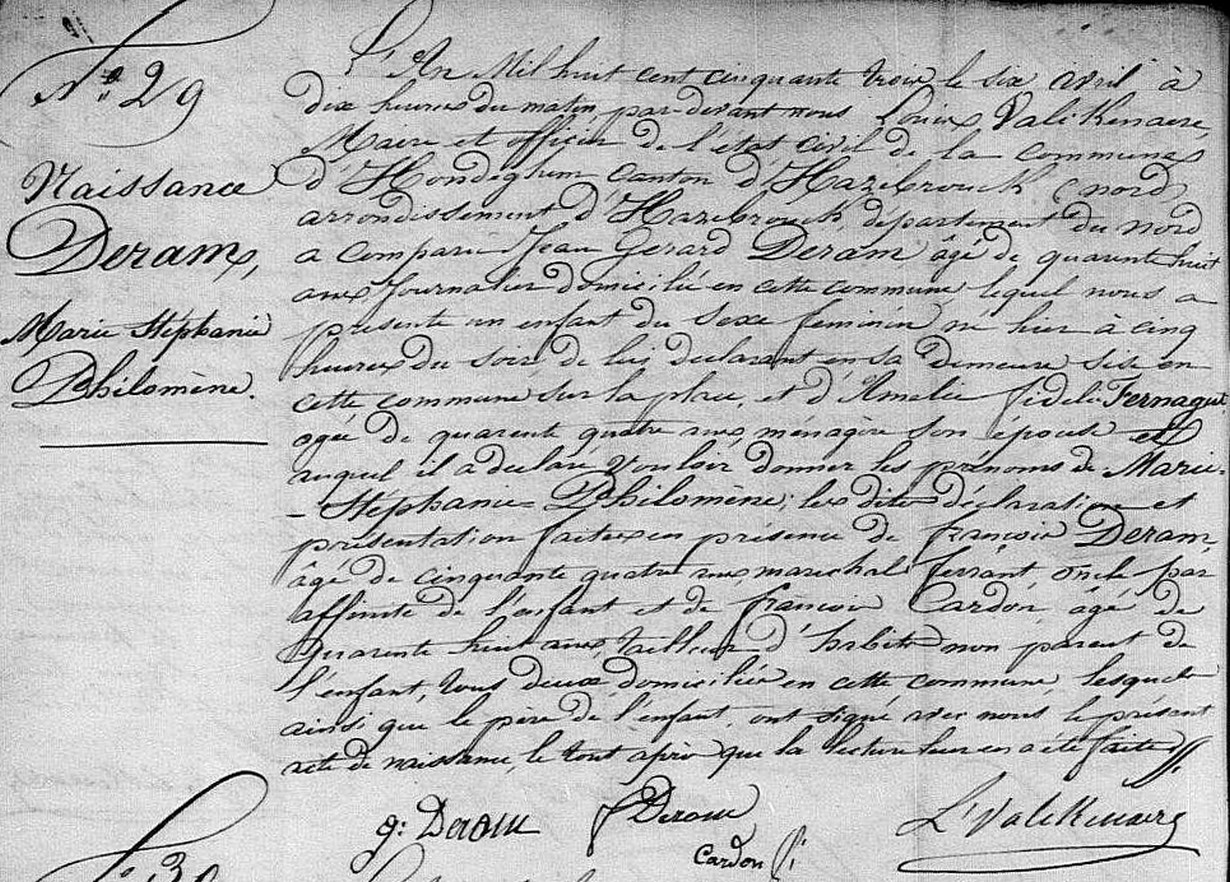 N.° 29
Naissance
Deram,
Marie Stéphanie
Philomène.
L'An Mil huit cent cinquante trois le six avril à
dix heures du matin, par-devant nous Louis Valckenaere,
Maire et officier de l'état civil de la commune
d'Hondeghem Canton d'Hazebrouck (nord)
arrondissement d'Hazebrouck, département du nord
a comparu Jean Gerard Deram âgé de quarente huit
ans Journalier domicilié en cette commune, lequel nous a
présenté un enfant du sexe feminin né hier à cinq
heures du soir, de lui déclarant en sa demeure sise en
cette commune sur la place, et d'Amelie fidele Fernagut
agée de quarente quatre ans, ménagère son épouse et
auquel il a declaré vouloir donner les prénoms de Marie-
-Stéphanie-Philomène; les dites déclaration et
présentation faites en présence de françois Deram,
âgé de cinquante quatre ans marechal ferrant, oncle par
affinité de l'enfant et de françois Cardon, âgé de
quarente huit ans, tailleur d'habits non parent de
l'enfant, tous deux domiciliés en cette commune, lesquels
ainsi que le père de l'enfant, ont signé avec nous le présent
acte de naissance, le tout après que la lecture leur en a été faite
g: Deram f Deram L Valckenaere
Cardon f
N.° 30